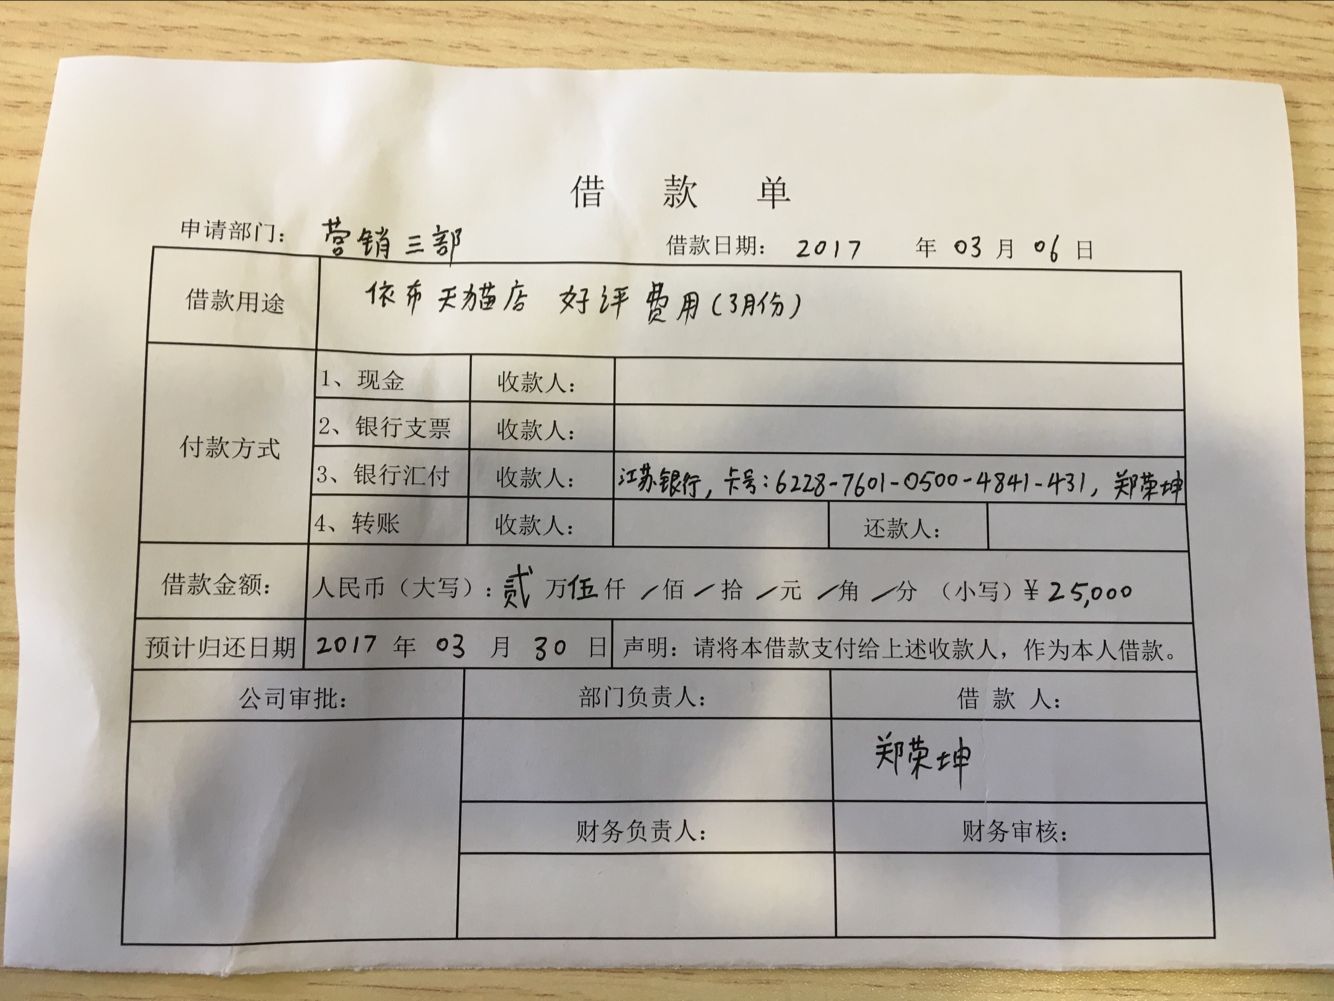 借 款 单
申请部门：营销三部 借款日期： 2017 年 03 月 06 日
借款用途 依布天猫店 好评费用（3月份）
付款方式
1、现金 收款人：
2、银行支票 收款人：
3、银行汇付 收款人： 江苏银行，卡号：6228-7601-0500-4841-431，郑荣坤
4、转账 收款人： 还款人：
借款金额： 人民币（大写）：贰 万 伍 仟 / 佰 / 拾 / 元 / 角 / 分 （小写）¥ 25,000
预计归还日期 2017 年 03 月 30 日 声明：请将本借款支付给上述收款人，作为本人借款。
公司审批： 部门负责人： 借 款 人：
郑荣坤
财务负责人： 财务审核：